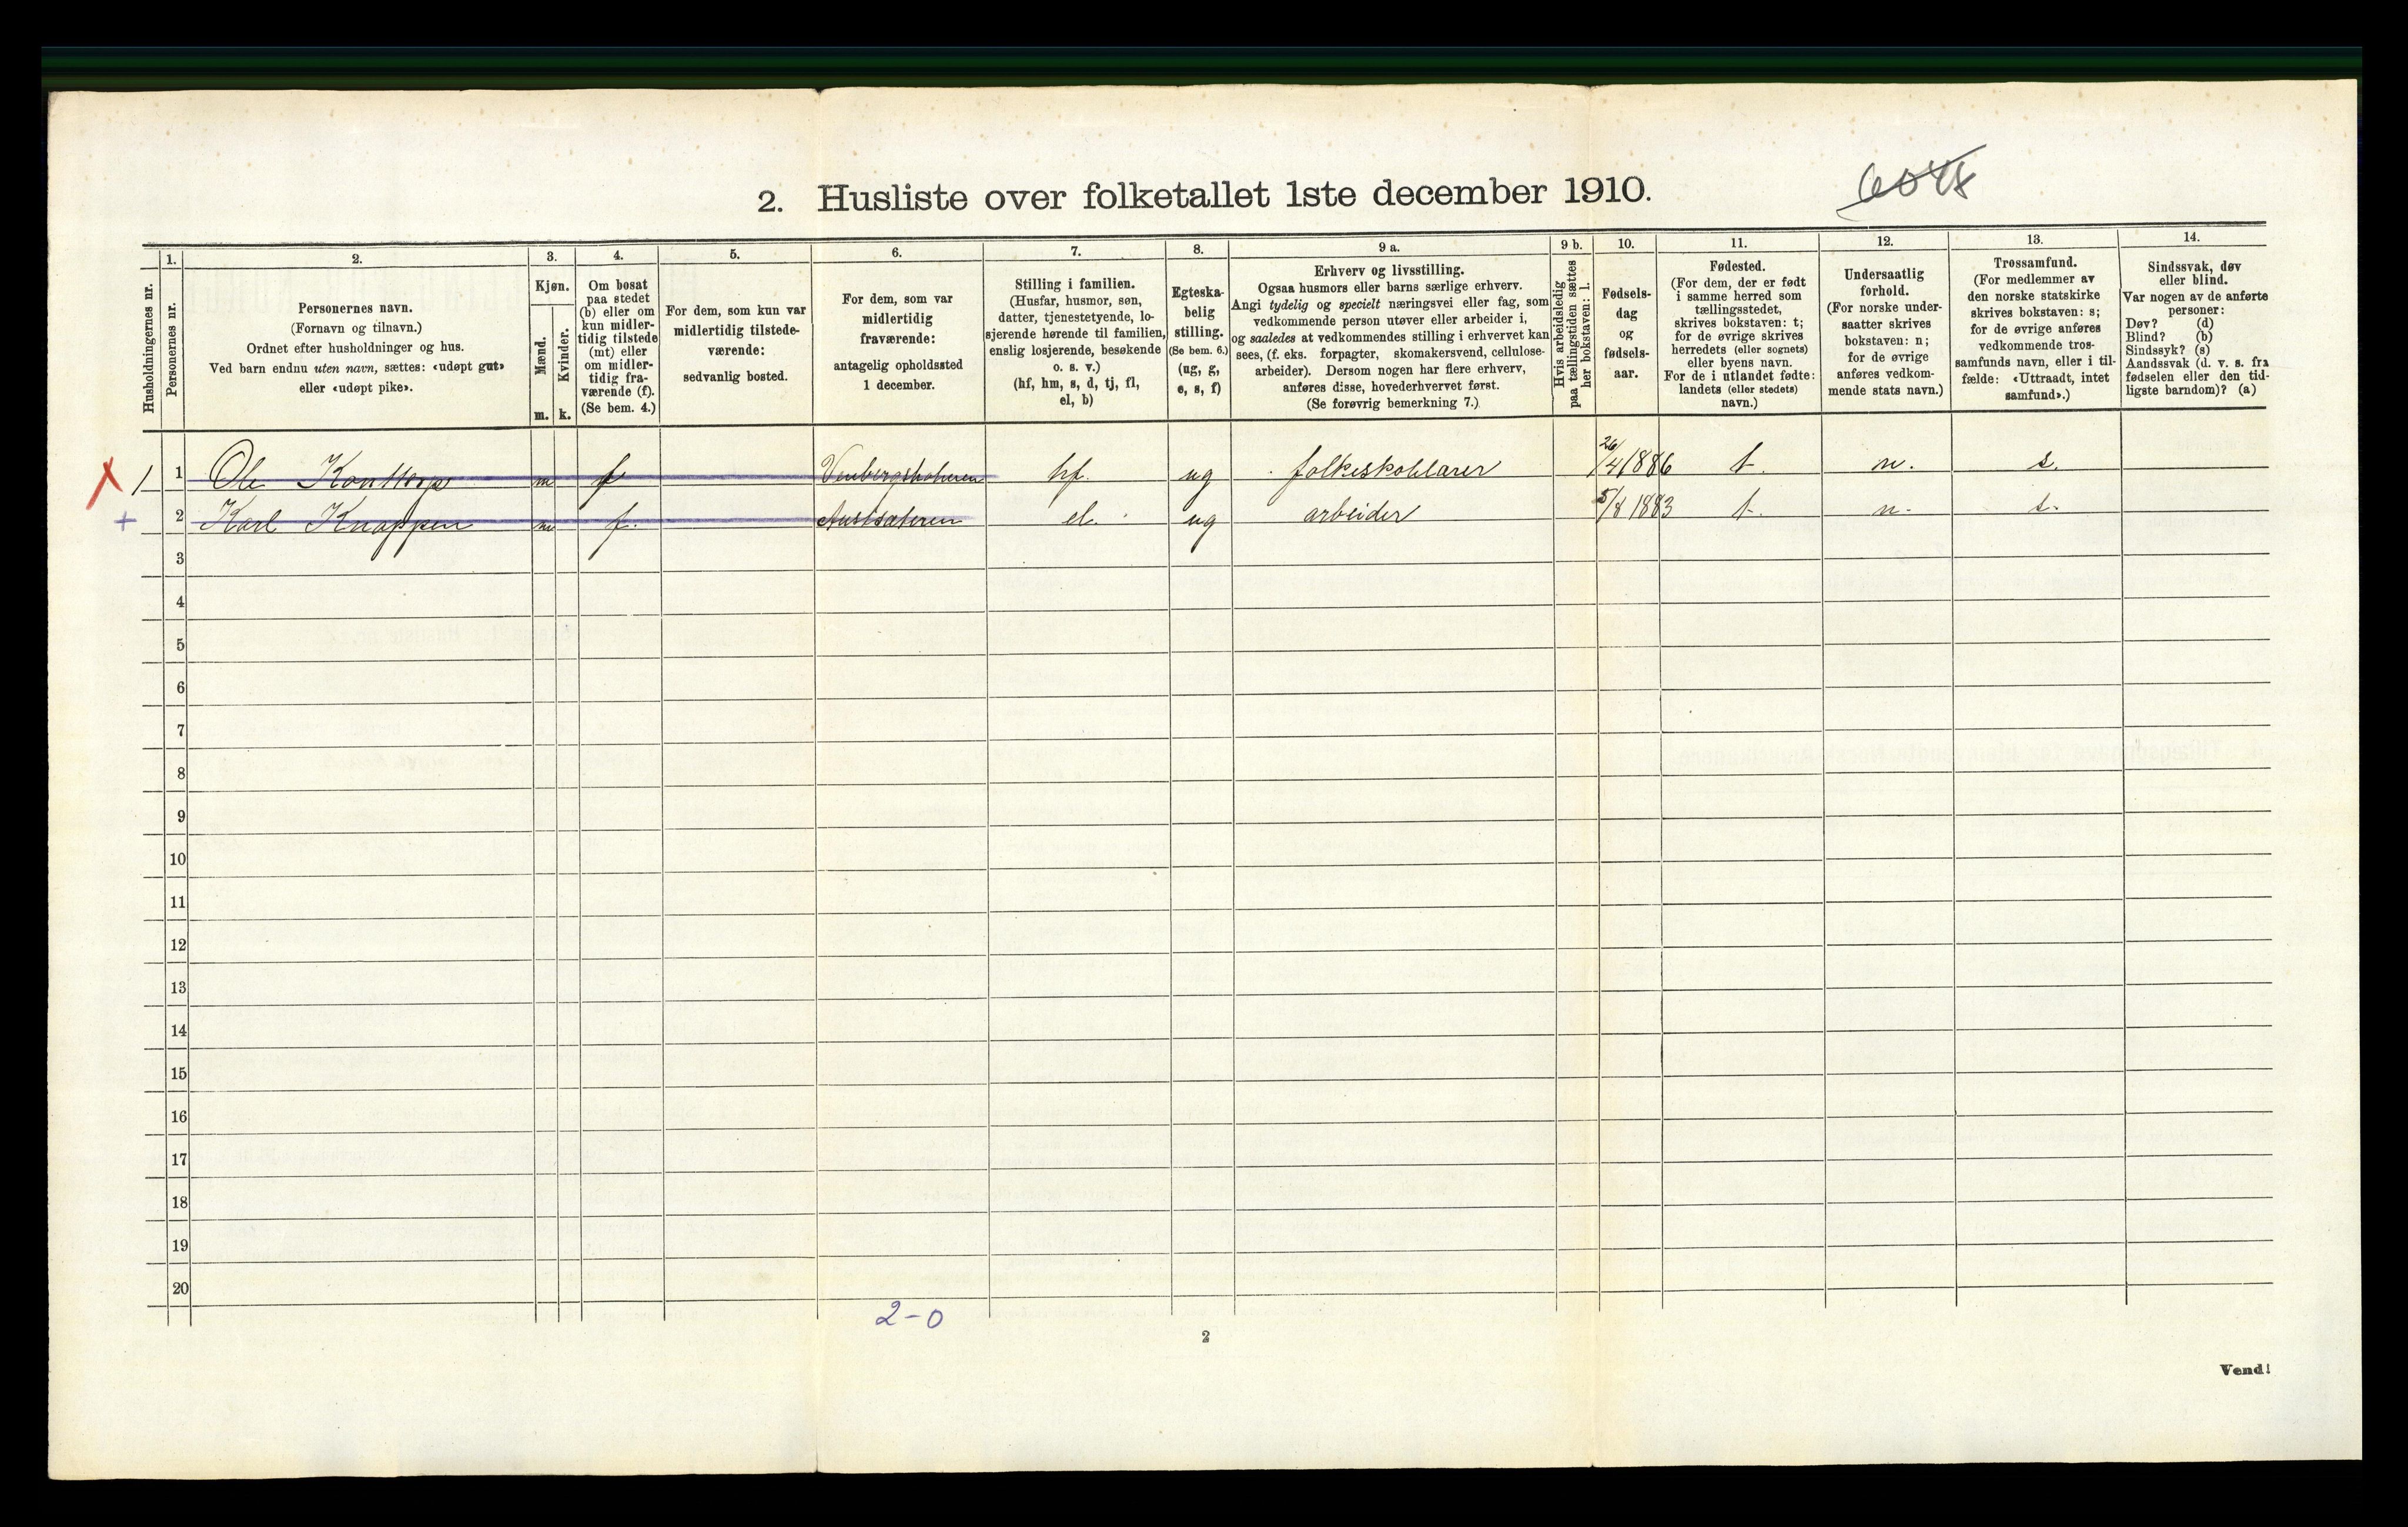 2. Husliste over folketallet 1ste december 1910.
1. 2. 3. 4. 5. 6. 7. 8. 9 a. 9 b. 10. 11. 12. 13. 14.
Husholdningernes nr.
Personernes nr.
Personernes navn.
(Fornavn og tilnavn.)
Ordnet efter husholdninger og hus.
Ved barn endnu uten navn, sættes: «udøpt gut»
eller «udøpt pike».
Kjøn.
Mænd.
Kvinder.
m. k.
Om bosat
paa stedet
(b) eller om
kun midler-
tidig tilstede
(mt) eller
om midler-
tidig fra-
værende (f).
(Se bem. 4.)
For dem, som kun var
midlertidig tilstede-
værende:
sedvanlig bosted.
For dem, som var
midlertidig
fraværende:
antagelig opholdssted
1 december.
Stilling i familien.
(Husfar, husmor, søn,
datter, tjenestetyende, lo-
sjerende hørende til familien,
enslig losjerende, besøkende
o. s. v.)
(hf, hm, s, d, tj, fl,
el, b)
Egteska-
belig
stilling.
(Se bem. 6.)
(ug, g,
e, s, f)
Erhverv og livsstilling.
Ogsaa husmors eller barns særlige erhverv.
Angi tydelig og specielt næringsvei eller fag, som
vedkommende person utøver eller arbeider i,
og saaledes at vedkommendes stilling i erhvervet kan
sees, (f. eks. forpagter, skomakersvend, cellulose-
arbeider). Dersom nogen har flere erhverv,
anføres disse, hovederhvervet først.
(Se forøvrig bemerkning 7.)
Hvis arbeidsledig
paa tællingstiden sættes
her bokstaven: l.
Fødsels-
dag
og
fødsels-
aar.
Fødested.
(For dem, der er født
i samme herred som
tællingsstedet,
skrives bokstaven: t;
for de øvrige skrives
herredets (eller sognets)
eller byens navn.
For de i utlandet fødte:
landets (eller stedets)
navn.)
Undersaatlig
forhold.
(For norske under-
saatter skrives
bokstaven: n;
for de øvrige
anføres vedkom-
mende stats navn.)
Trossamfund.
(For medlemmer av
den norske statskirke
skrives bokstaven: s;
for de øvrige anføres
vedkommende tros-
samfunds navn, eller i til-
fælde: «Uttraadt, intet
samfund».)
Sindssvak, døv
eller blind.
Var nogen av de anførte
personer:
Døv? (d)
Blind? (b)
Sindssyk? (s)
Aandssvak (d. v. s. fra
fødselen eller den tid-
ligste barndom)? (a)
1 1 Ole m f hf. ug folkeskolelærer 26/4 1886 t. n. s.
2 Karl Knappen m f. Austsæteren el. ug arbeider 5/8 1883 t. n. s.
3
4
5
6
7
8
9
10
11
12
13
14
15
16
17
18
19
20
2-0
2
Vend!